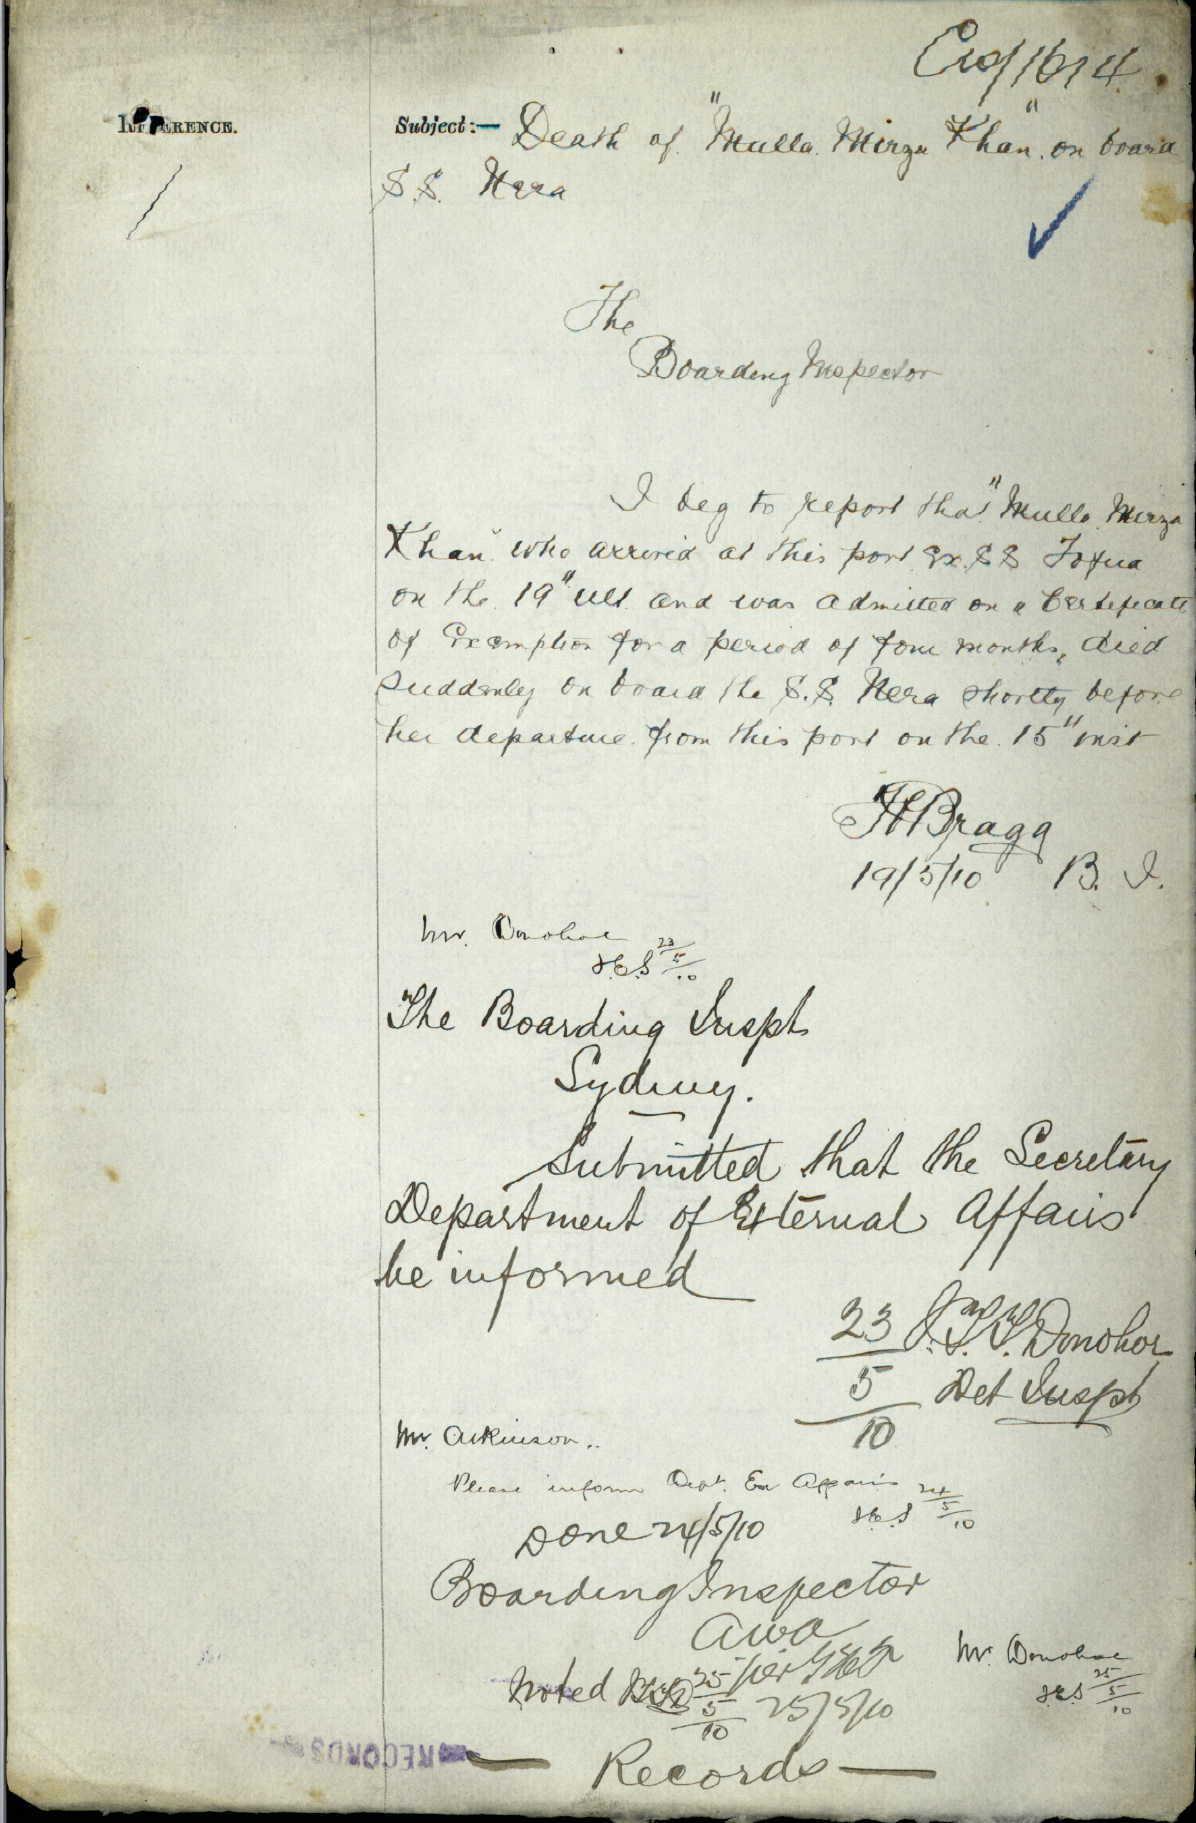 C10/1614
REFERENCE.
Subject:— Death of "Mulla Mirza Khan" on board
S.S. Nera
The
Boarding Inspector
I beg to report that "Mulla Mirza
Khan" who arrived at this port ex. S S Tofua
on the 19" ult. and was admitted on a Certificate
of Exemption for a period of four months, died
suddenly on board the S.S. Nera shortly before
her departure from this port on the 15" inst
Bragg
19/5/10 B. I.
Mr. Donohoe
23/5/10
The Boarding Inspt
Sydney.
Submitted that the Secretary
Department of External Affairs
be informed
23/5/10 J.T.T. Donohoe
Det Inspt
Mr. Atkinson..
Please inform Dept. Ex Affairs 24/5/10
Done 24/5/10
Boarding Inspector
AWA
Mr. Donohoe
Noted 25/5/10 25/5/10
25/5/10
RECORDS
— Records —